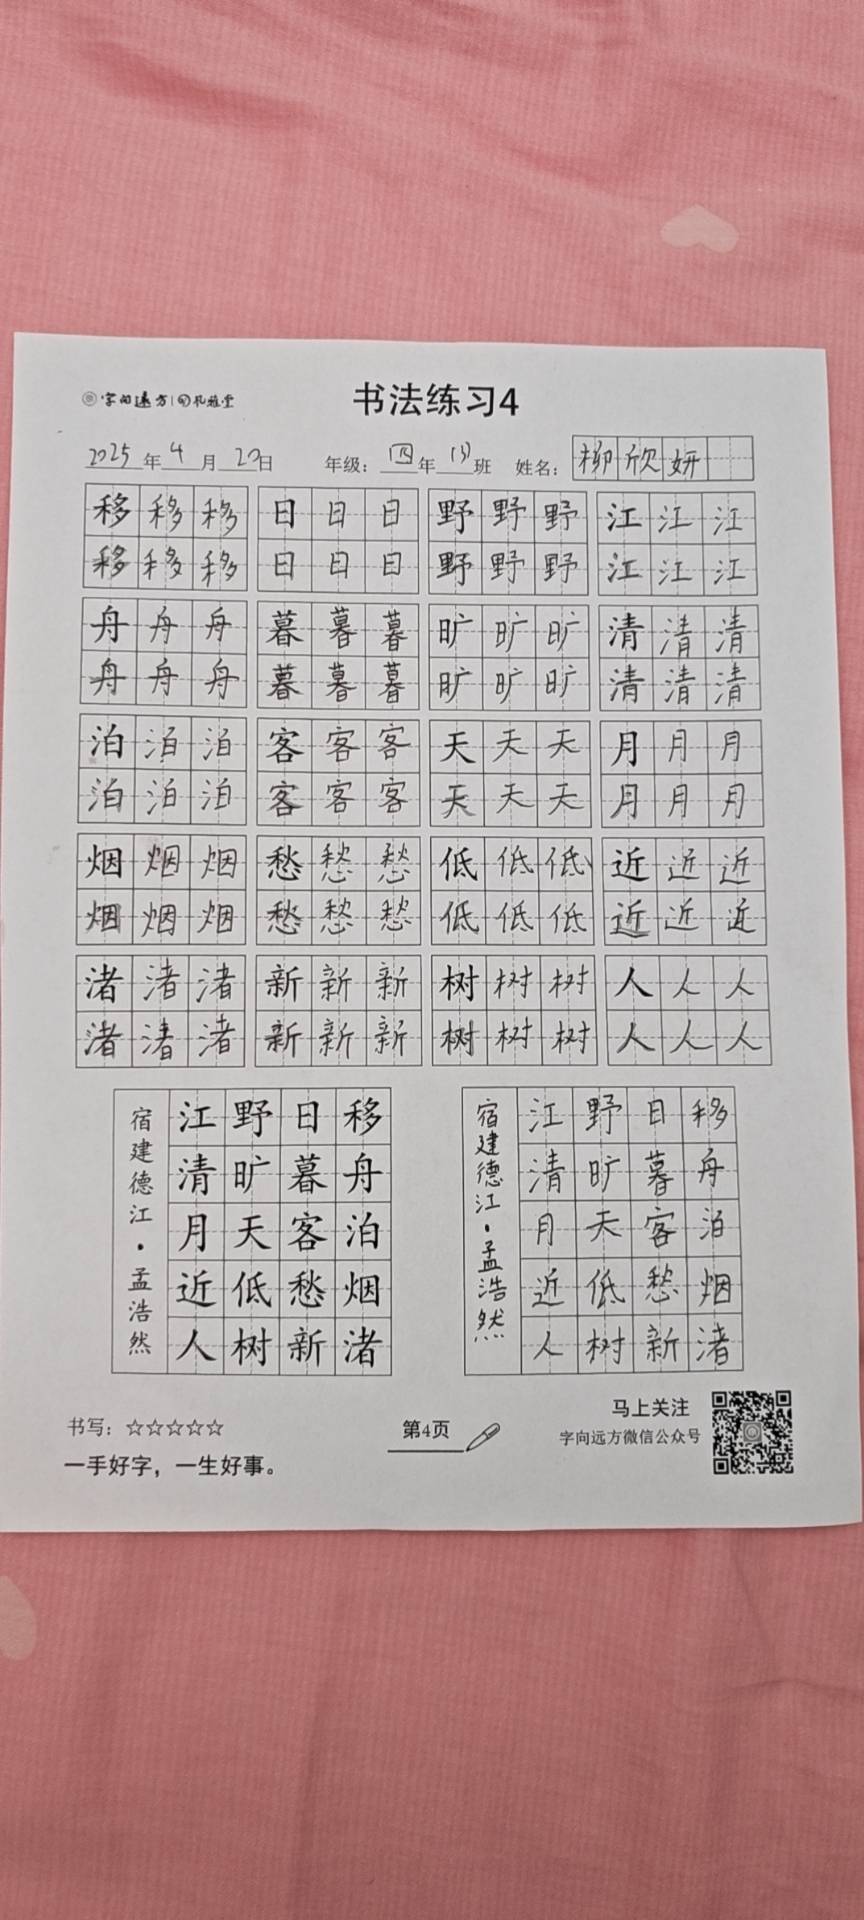 字向远方 礼雅堂
书法练习4
2025年4月20日 年级：四年(3)班 姓名：柳欣妍
移移移 日日日 野野野 江江江
移移移 日日日 野野野 江江江
舟舟舟 暮暮暮 旷旷旷 清清清
舟舟舟 暮暮暮 旷旷旷 清清清
泊泊泊 客客客 天天天 月月月
泊泊泊 客客客 天天天 月月月
烟烟烟 愁愁愁 低低低 近近近
烟烟烟 愁愁愁 低低低 近近近
渚渚渚 新新新 树树树 人人人
渚渚渚 新新新 树树树 人人人
移舟泊烟渚
日暮客愁新
野旷天低树
江清月近人
宿建德江·孟浩然
移舟泊烟渚
日暮客愁新
野旷天低树
江清月近人
宿建德江·孟浩然
书写：☆☆☆☆☆
一手好字，一生好事。
第4页
马上关注
字向远方微信公众号